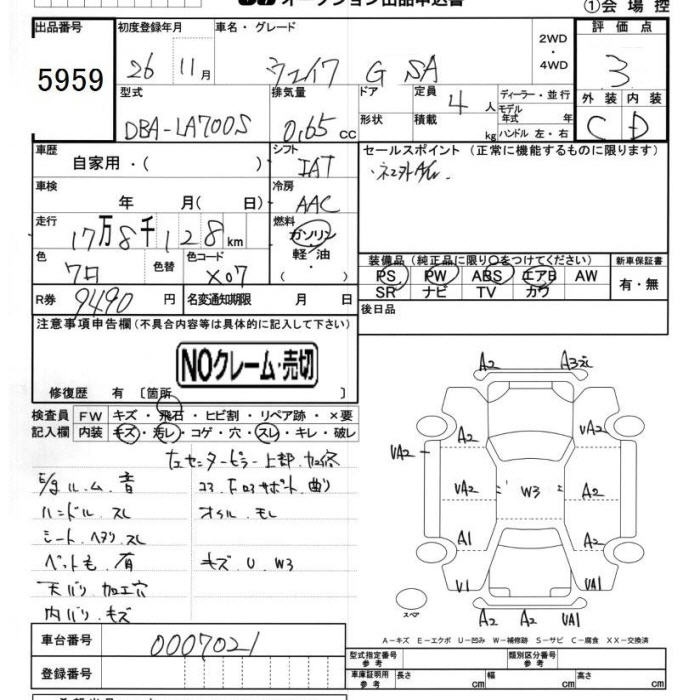 オークション出品申込書
①会場控
出品番号 5959
初度登録年月 26 11月
車名・グレード ウェイク G SA
2WD・4WD
評価点 3
外装 内装
C D
型式 DBA-LA700S
排気量 0.65 cc
ドア
形状
定員 4 人
積載 kg
ディーラー・並行
モデル年式 年
ハンドル 左・右
車歴 自家用・( )
シフト IAT
セールスポイント (正常に機能するものに限ります)
・ネコ外AW.
車検 年 月( 日)
冷房 AAC
走行 17万8千128km
燃料 ガソリン
軽・油
( )
色 クロ
色替
色コード X07
装備品(純正品に限り○をつけてください)
PS PW ABS エアB AW
SR ナビ TV カワ
新車保証書
有・無
R券 9490 円
名変通知期限 月 日
後日品
注意事項申告欄(不具合内容等は具体的に記入して下さい)
NOクレーム・売切
修復歴 有 〔箇所 〕
検査員記入欄
FW キズ・飛石・ヒビ割・リペア跡・×要
内装 キズ・汚レ・コゲ・穴・スレ・キレ・破レ
左センターピラー上部.加修
E/gルーム.音 コア.ロアサポート.曲り
ハンドル.スレ オイル.モレ
シート.ヘタリ.スレ
ペット毛.有 キズ.U.W3
天バリ.加工穴
内バリ.キズ
A2 A3
A2 VA2
VA2
VA2 W3 A2
A1 A2
V1 VA1
A2 A2 UA1
スペア
A-キズ E-エクボ U-凹み W-補修跡 S-サビ C-腐食 XX-交換済
車台番号 0007021
型式指定番号 参考
類別区分番号 参考
登録番号
車庫証明用 参考
長さ cm 幅 cm 高さ cm